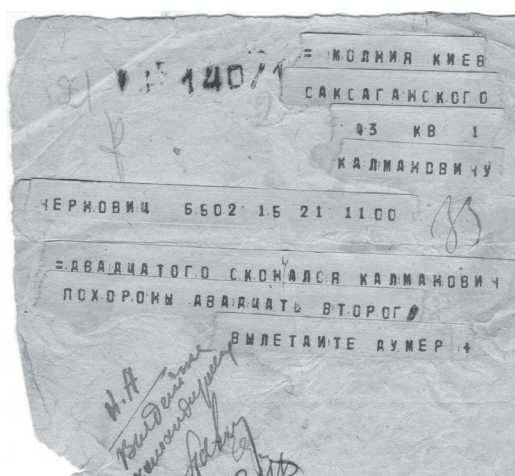 140/1
= МОЛНИЯ КИЕВ
САКСАГАНСКОГО
43 КВ 1
КАЛМАНОВИЧУ
ЧЕРНОВИЦ 6502 15 21 1100
=ДВАДЦАТОГО СКОНЧАЛСЯ КАЛМАНОВИЧ
ПОХОРОНЫ ДВАДЦАТЬ ВТОРОГО
ВЫЛЕТАЙТЕ ДУМЕР +
Н.А
Выдайте